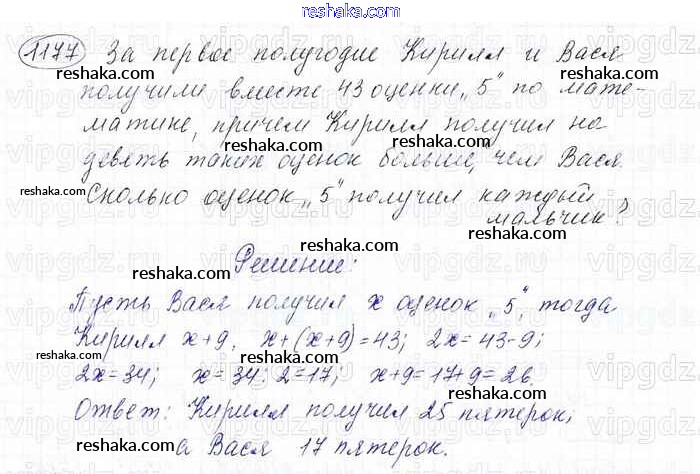 reshaka.com
1177 За первое полугодие Кирилл и Вася
получили вместе 43 оценки „5“ по мате-
матике, причем Кирилл получил на
девять таких оценок больше, чем Вася.
Сколько оценок „5“ получил каждый
мальчик?
Решение:
Пусть Вася получил x оценок „5“, тогда
Кирилл x+9, x+(x+9)=43; 2x=43-9;
2x=34; x=34:2=17; x+9=17+9=26.
Ответ: Кирилл получил 25 пятерок,
а Вася 17 пятерок.
reshaka.com